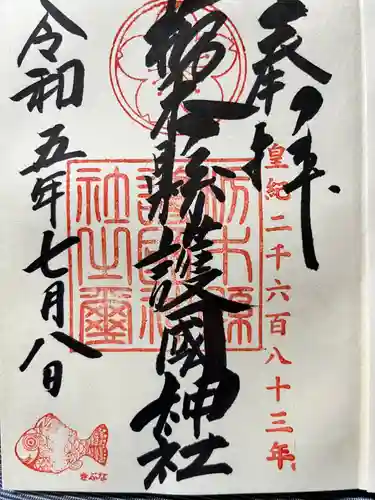 奉拝
皇紀二千六百八十三年
栃木縣護國神社
栃木縣護國神社之璽
令和五年七月八日
きぶな